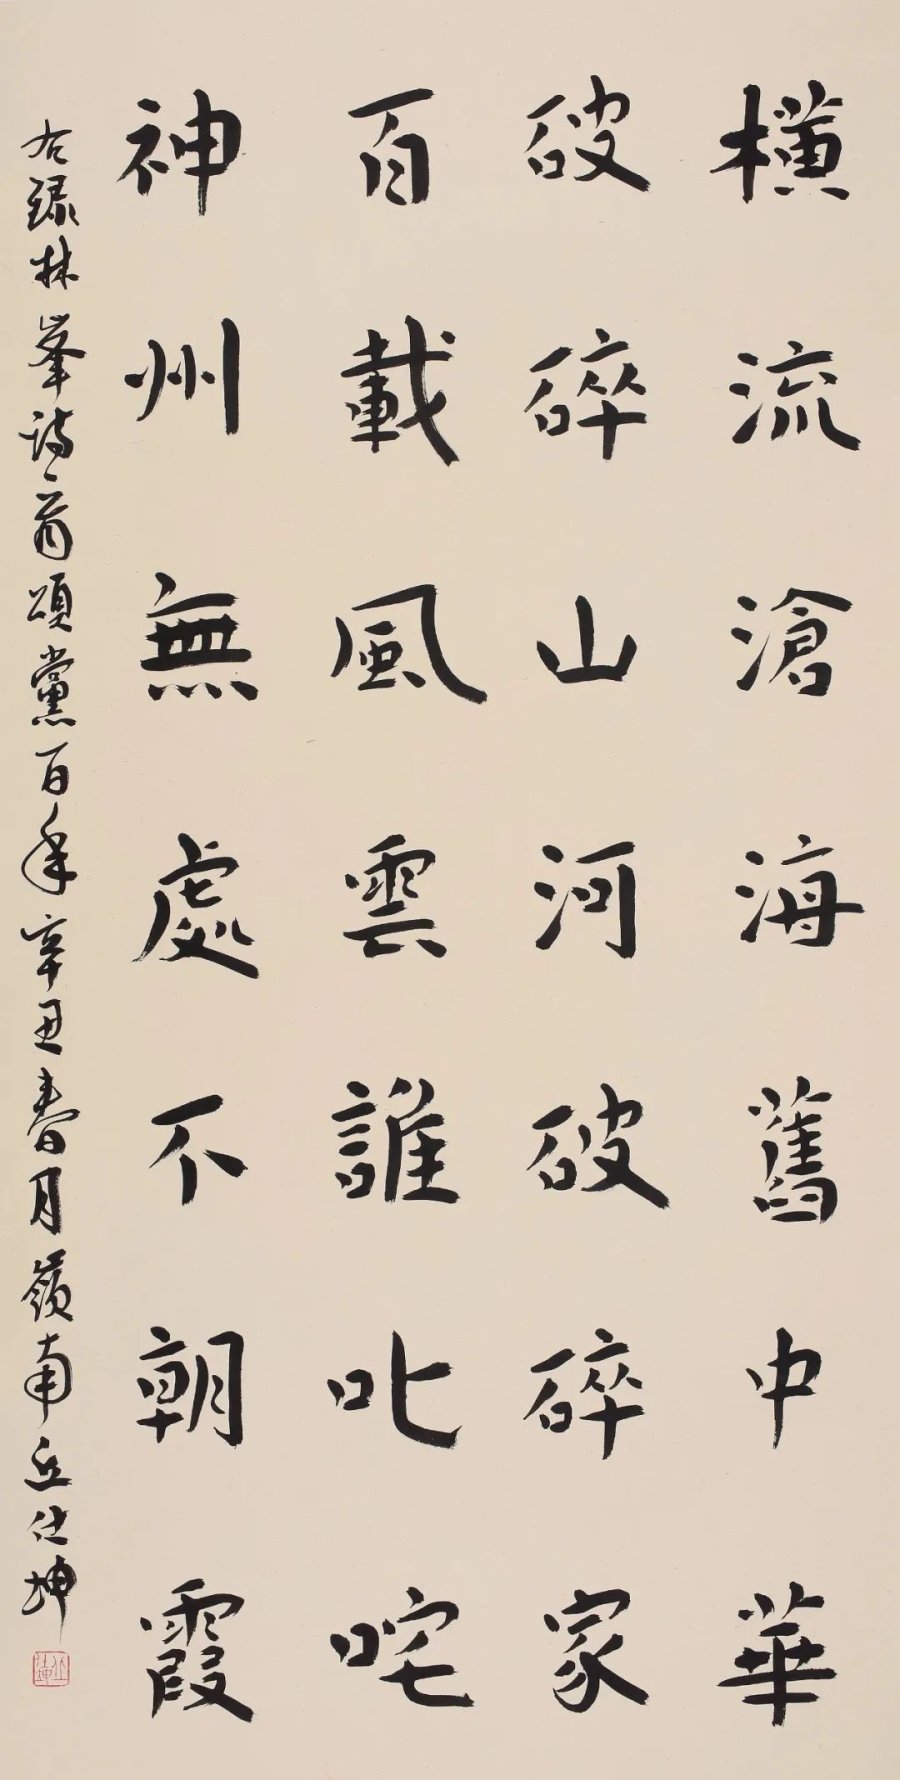 橫流滄海舊中華
破碎山河破碎家
百載風雲誰叱咤
神州無處不朝霞
右錄林峯詩一首頌黨百年辛丑春月嶺南丘仕坤